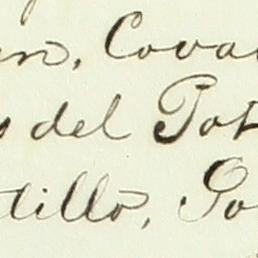 en, Cova
del Pot
tillo, Go